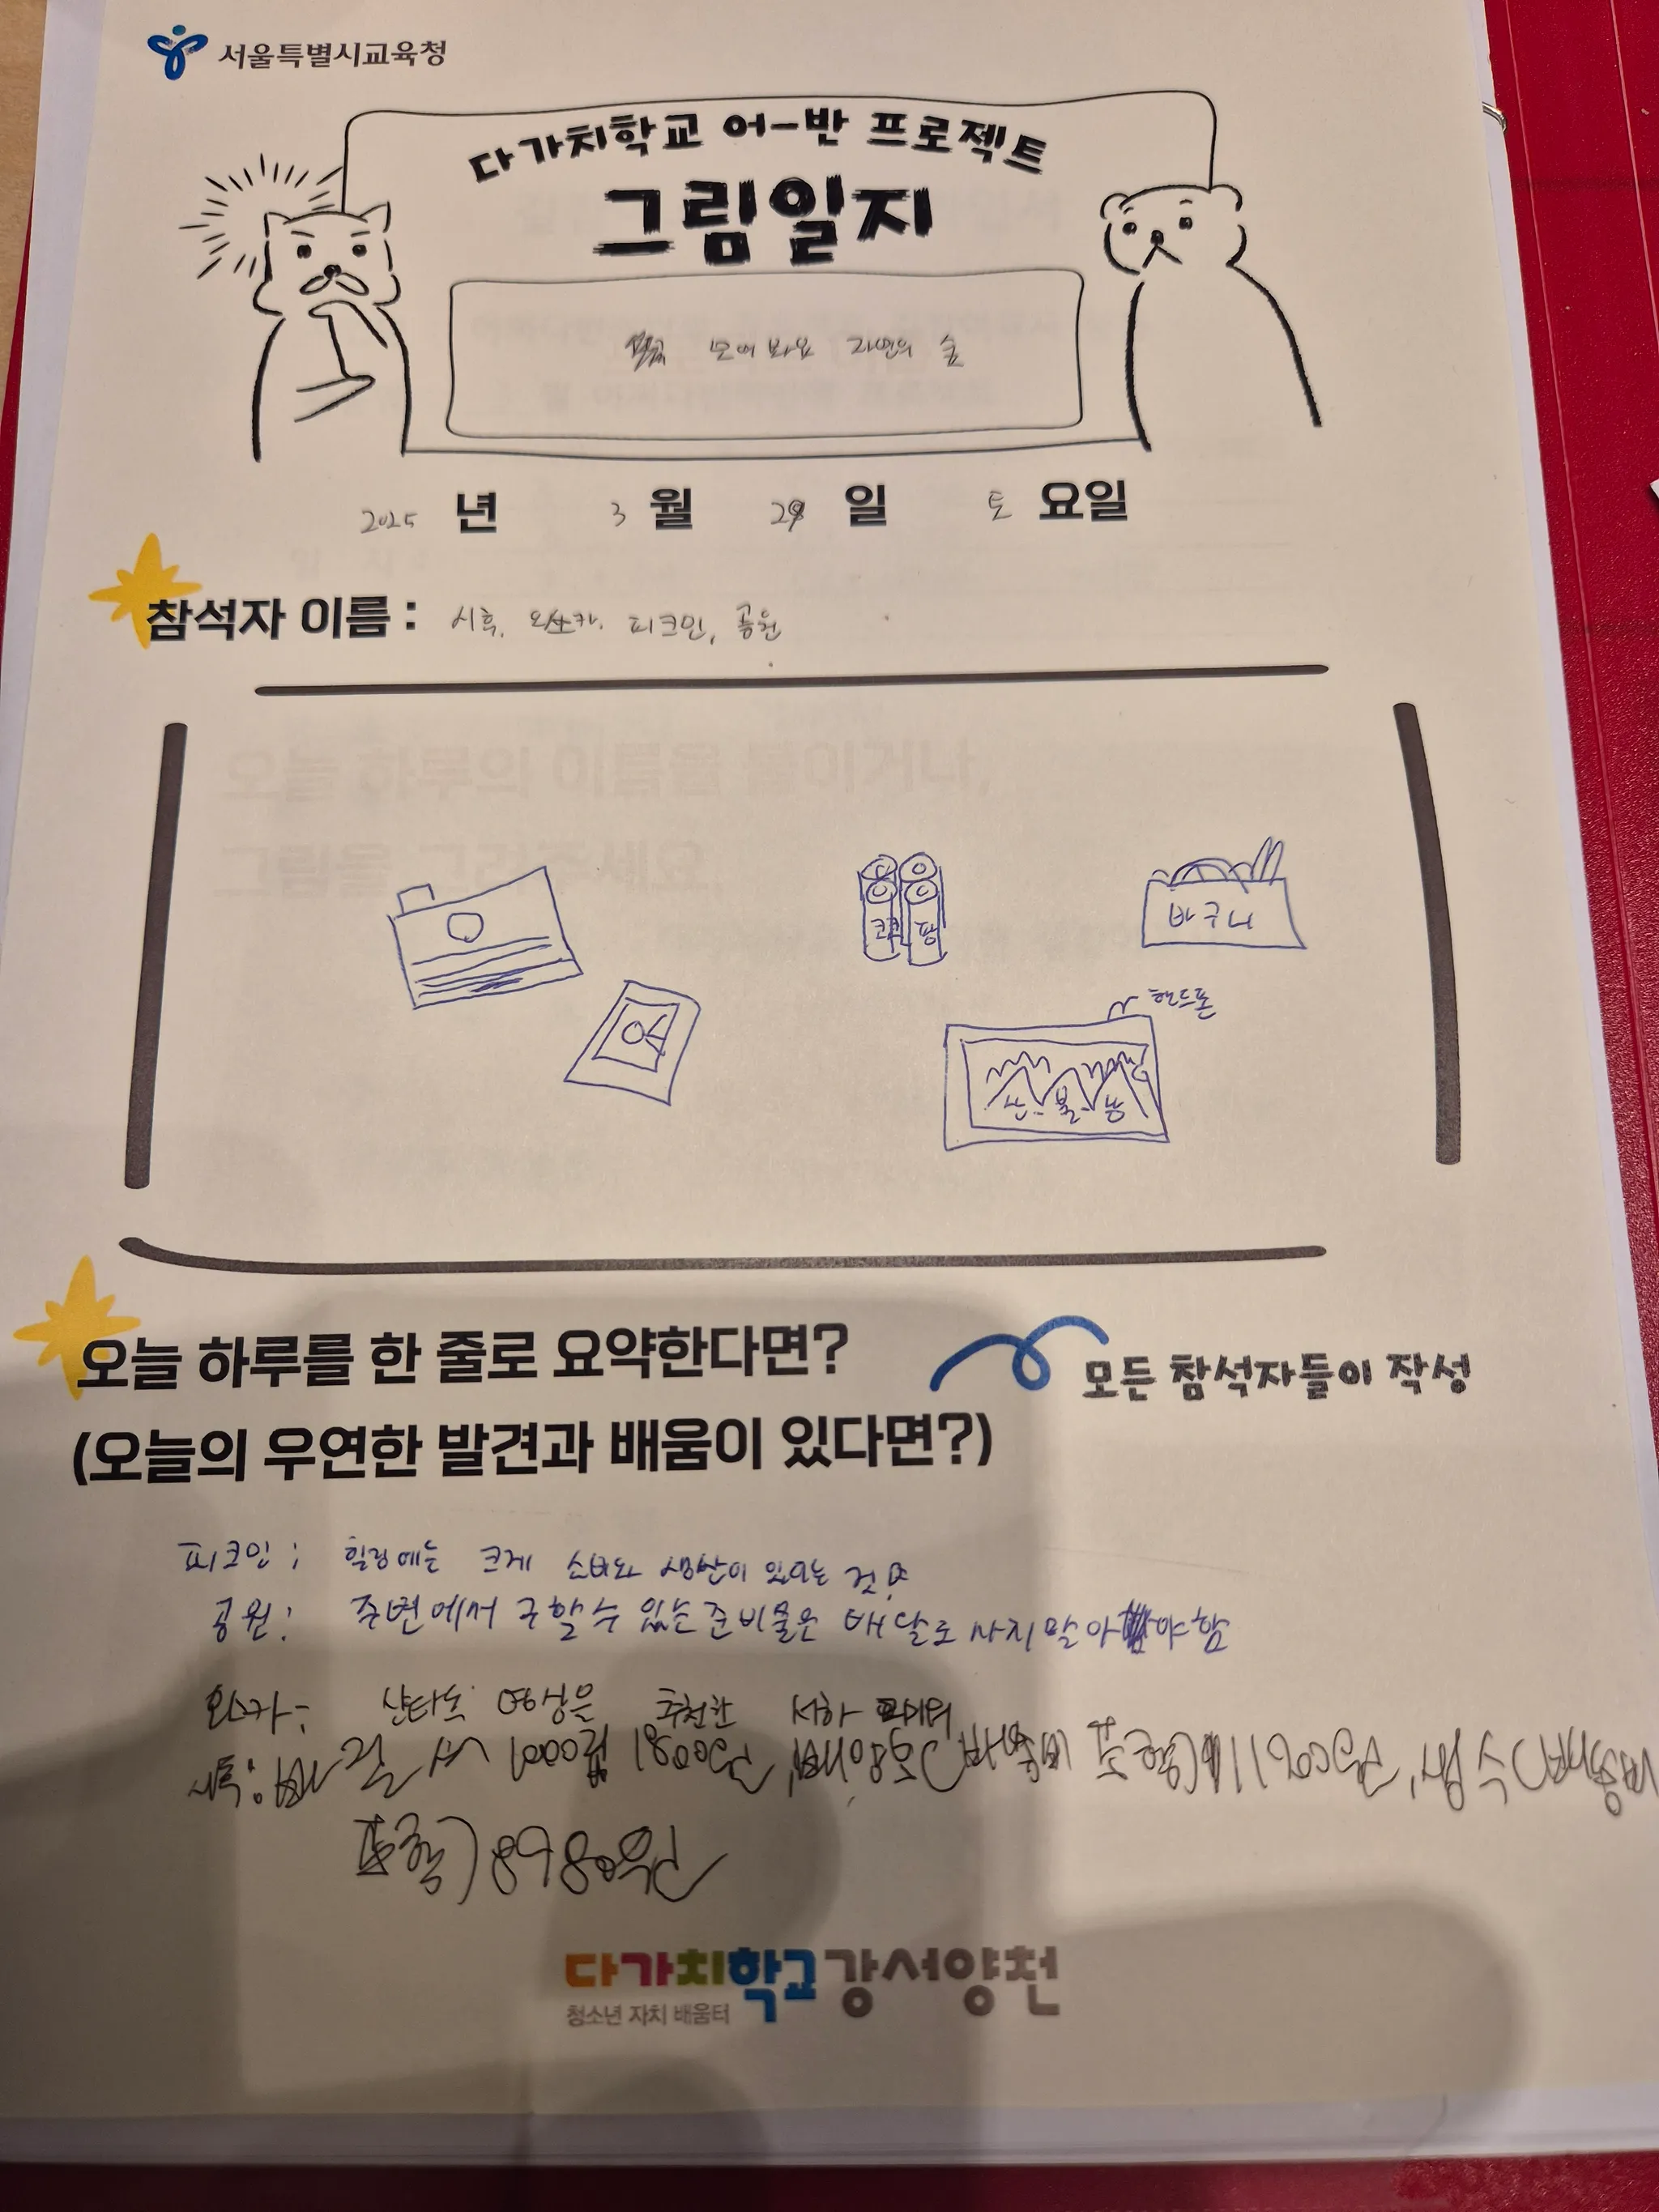 서울특별시교육청
다가치학교 어-반 프로젝트
그림일지
모여봐요 자연의 숲
2025 년 3 월 29 일 토 요일
참석자 이름 : 시후, 오스카, 피크민, 공원
코크 팡
바구니
핸드폰
산 불
오늘 하루를 한 줄로 요약한다면?
모든 참석자들이 작성
(오늘의 우연한 발견과 배움이 있다면?)
피크민 : 힐링에는 크게 소비와 생산이 있다는 것!
공원 : 주변에서 구할 수 있는 준비물은 배달로 사지 말아야함
오스카 : 산타는 영상을 추천한 서하
시후 : 1000 원
포함) 8980원
다가치학교 강서양천
청소년 자치 배움터